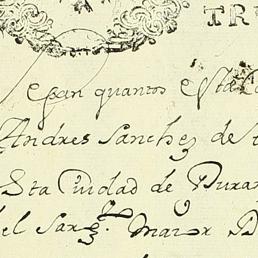 TR
Sepan quantos esta
Andres Sanchez de
esta Ciudad de Dura
del Sarg.to Maior D